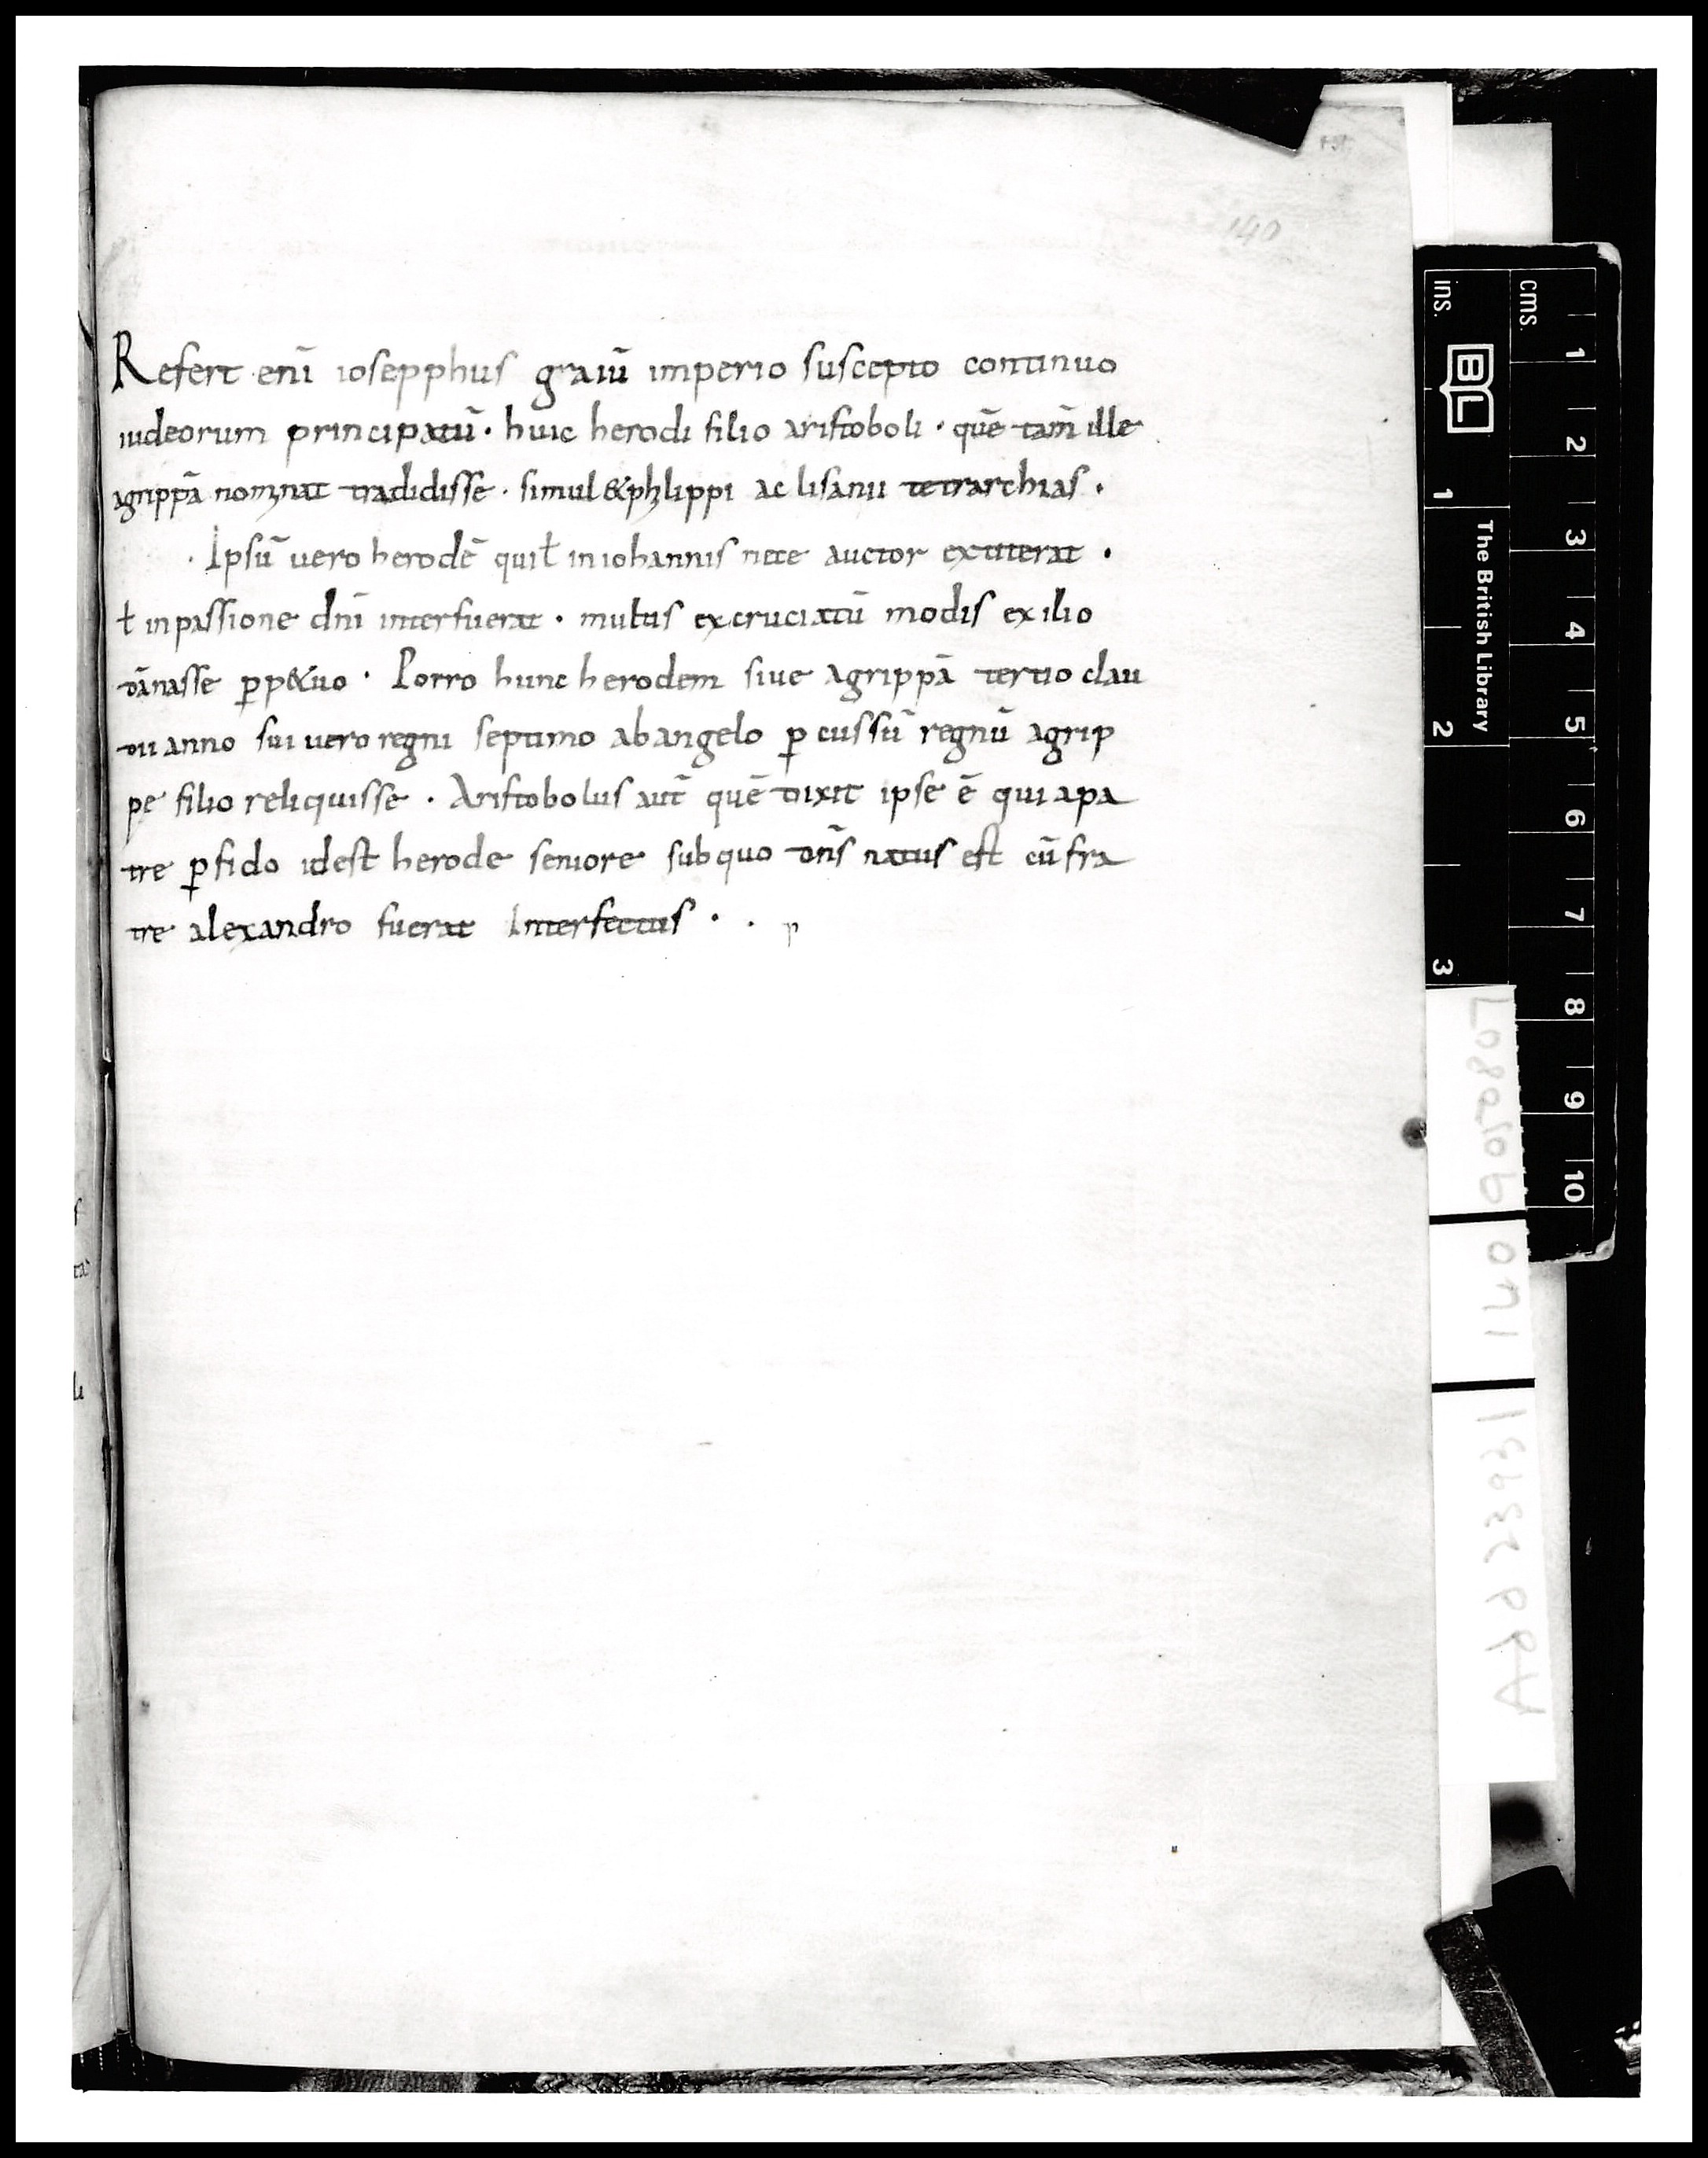 140
Refert enī iosepphus graiū imperio suscepto continuo
iudeorum principatū · huic herodi filio aristoboli · quē tam̄ ille
agrippā nominat tradidisse · simul & philippi ac lisanii tetrarchias ·
· Ipsū vero herodē qui ł in iohannis nece auctor extiterat ·
ł in passione dn̄i interfuerat · multis excruciatū modis exilio
dānasse ꝑp&uo · Porro hunc herodem siue agrippā tertio clau
dii anno sui vero regni septimo ab angelo ꝑcussū regnū agrip
pe filio reliquisse · Aristobolus aut̄ quē dixit ipse ē qui a pa
tre ꝑfido idest herode seniore sub quo dn̄s natus est cū fra
tre alexandro fuerat Interfectus · ·
ins.
cms.
BL
The British Library
1
2
3
1
2
3
4
5
6
7
8
9
10
140
ADD 23931